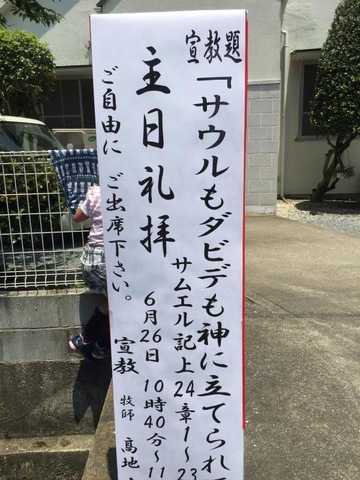 宣教題
「サウルもダビデも神に立てられ
サムエル記上24章1〜23
主日礼拝
6月26日 10時40分〜11
宣教 牧師 高地
ご自由に ご出席下さい。